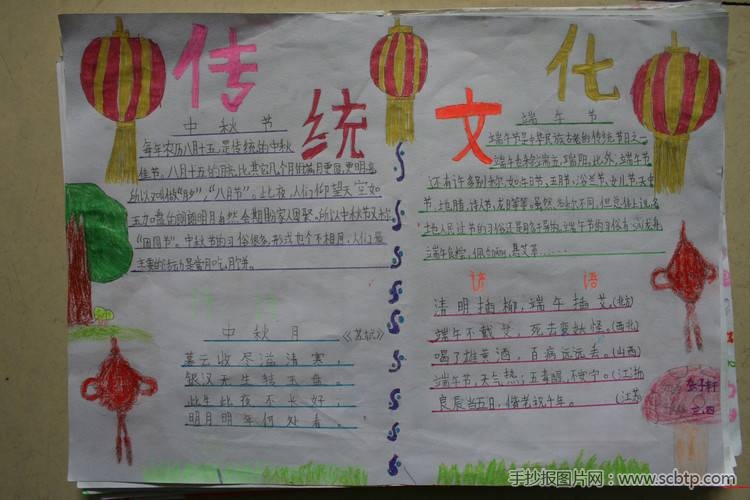 传统文化
中秋节
每年农历八月十五,是传统的中秋
佳节。八月十五的月亮比其它几个月的满月更圆,更明亮,
所以又叫做“月夕”,“八月节”。此夜,人们仰望天空如
玉如盘的朗朗明月自然会期盼家人团聚。所以中秋节又称
“团圆节”。中秋节的习俗很多,形式也个不相同,人们最
主要的活动是赏月吃月饼。
中秋月
《苏轼》
暮云收尽溢清寒,
银汉无生转玉盘。
此生此夜不长好,
明月明年何处看。
端午节
端午节是中华民族古老的传统节日之一。
端午也称端五,端阳。此外,端午节
还有许多别称,如:午日节、五月节、浴兰节、女儿节、天中
节、地腊、诗人节、龙日等等。虽然名称不同,但总体上说,各
地人民过节的习俗还是同多于异的。端午节的习俗有sài龙舟
端午食粽,佩
谚语
清明插柳,端午插艾。(北方)
端午不戴艾,死去变妖怪。(西北)
喝了雄黄酒,百病远远去。(山西)
端午节,天气热;五毒醒,不安宁。(江浙)
良辰当五日,偕老祝千年。(江苏)
手抄报图片网:www.scbtp.com